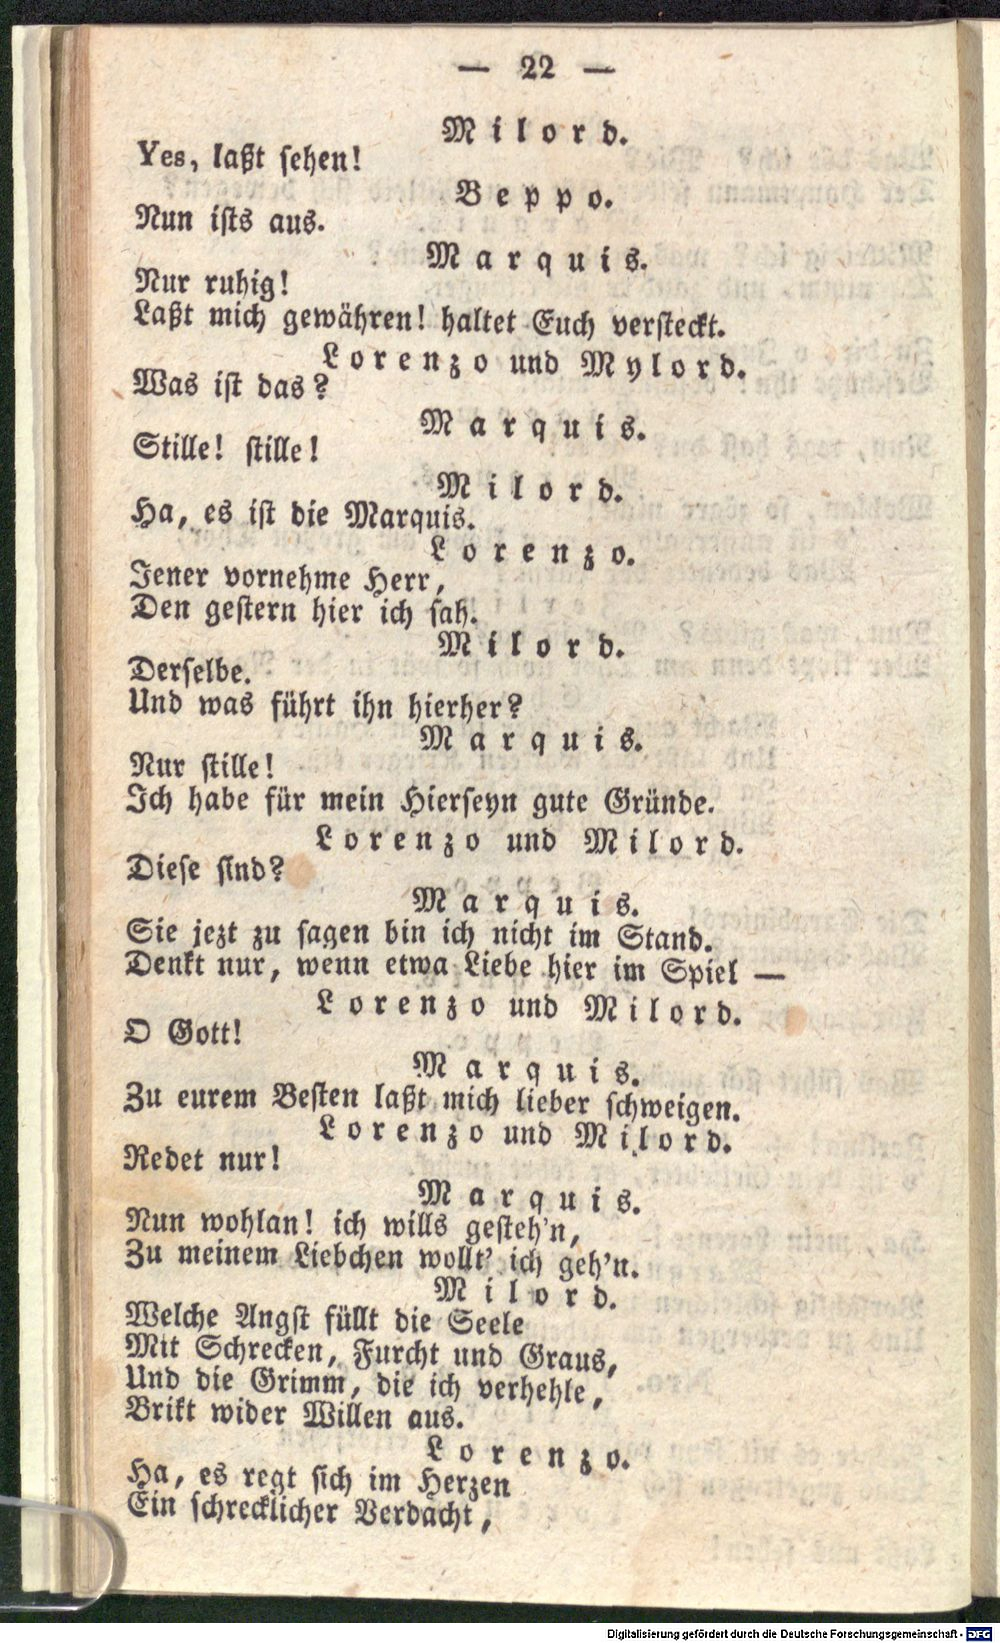 — 22 —
Milord.
Yes, laßt sehen!
Beppo.
Nun ists aus.
Marquis.
Nur ruhig!
Laßt mich gewähren! haltet Euch versteckt.
Lorenzo und Mylord.
Was ist das?
Marquis.
Stille! stille!
Milord.
Ha, es ist die Marquis.
Lorenzo.
Jener vornehme Herr,
Den gestern hier ich sah.
Milord.
Derselbe.
Und was führt ihn hierher?
Marquis.
Nur stille!
Ich habe für mein Hierseyn gute Gründe.
Lorenzo und Milord.
Diese sind?
Marquis.
Sie jezt zu sagen bin ich nicht im Stand.
Denkt nur, wenn etwa Liebe hier im Spiel —
Lorenzo und Milord.
O Gott!
Marquis.
Zu eurem Besten laßt mich lieber schweigen.
Lorenzo und Milord.
Redet nur!
Marquis.
Nun wohlan! ich wills gesteh'n,
Zu meinem Liebchen wollt' ich geh'n.
Milord.
Welche Angst füllt die Seele
Mit Schrecken, Furcht und Graus,
Und die Grimm, die ich verhehle,
Brikt wider Willen aus.
Lorenzo.
Ha, es regt sich im Herzen
Ein schrecklicher Verdacht,
Digitalisierung gefördert durch die Deutsche Forschungsgemeinschaft - DFG